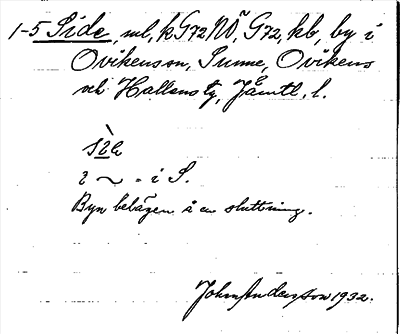 1-5 Side, ml, kG72NÖ, G72, kb, by i
Ovikenson, Sunne, Ovikens
och Hallens tg, Jämtl. l.
i ~ = i S.
Byn belägen å en sluttning.
John Anderson 1932.